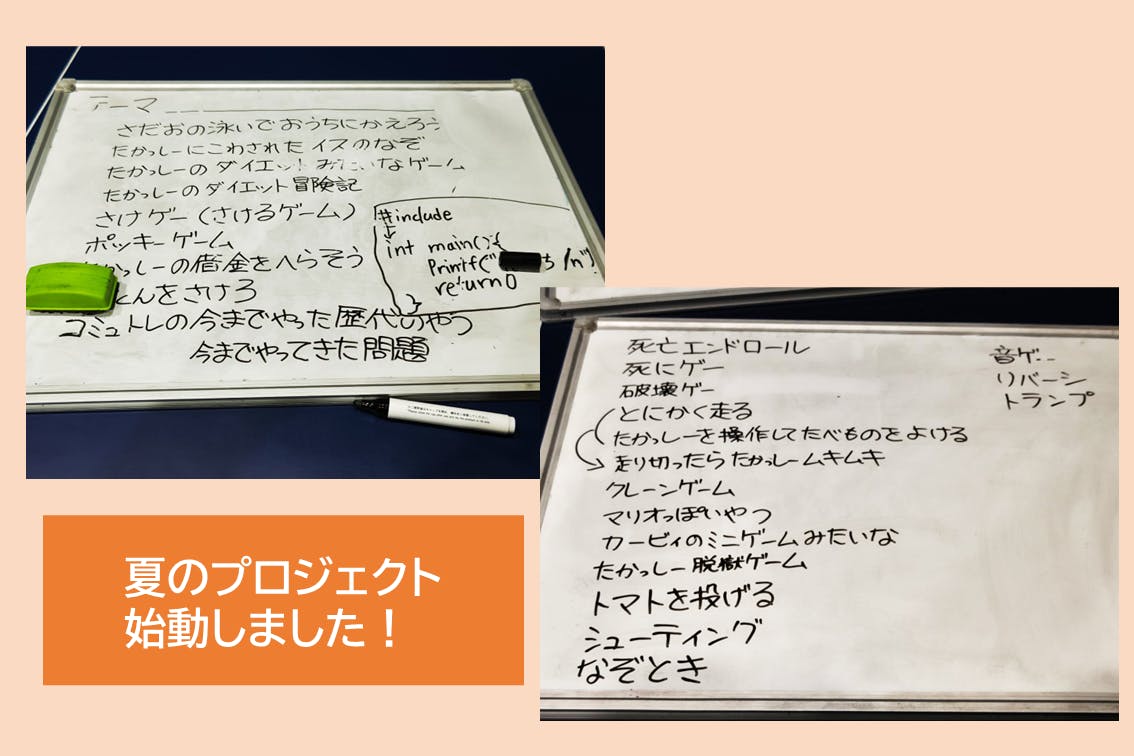 テーマ
さだおの泳いでおうちにかえろう
たかっしーにこわされたイスのなぞ
たかっしーのダイエットみたいなゲーム
たかっしーのダイエット冒険記
さけゲー(さけるゲーム)
ポッキーゲーム
かっしーの借金をへらそう
とんをさけろ
コミュトレの今までやった歴代のやつ
今までやってきた問題
#include
int main(){
Printf(" ち/n")
return 0
}
死亡エンドロール
死にゲー
破壊ゲー
とにかく走る
たかっしーを操作してたべものをよける
走り切ったらたかっしームキムキ
クレーンゲーム
マリオっぽいやつ
カービィのミニゲームみたいな
たかっしー脱獄ゲーム
トマトを投げる
シューティング
なぞとき
音ゲー
リバーシ
トランプ
夏のプロジェクト
始動しました！